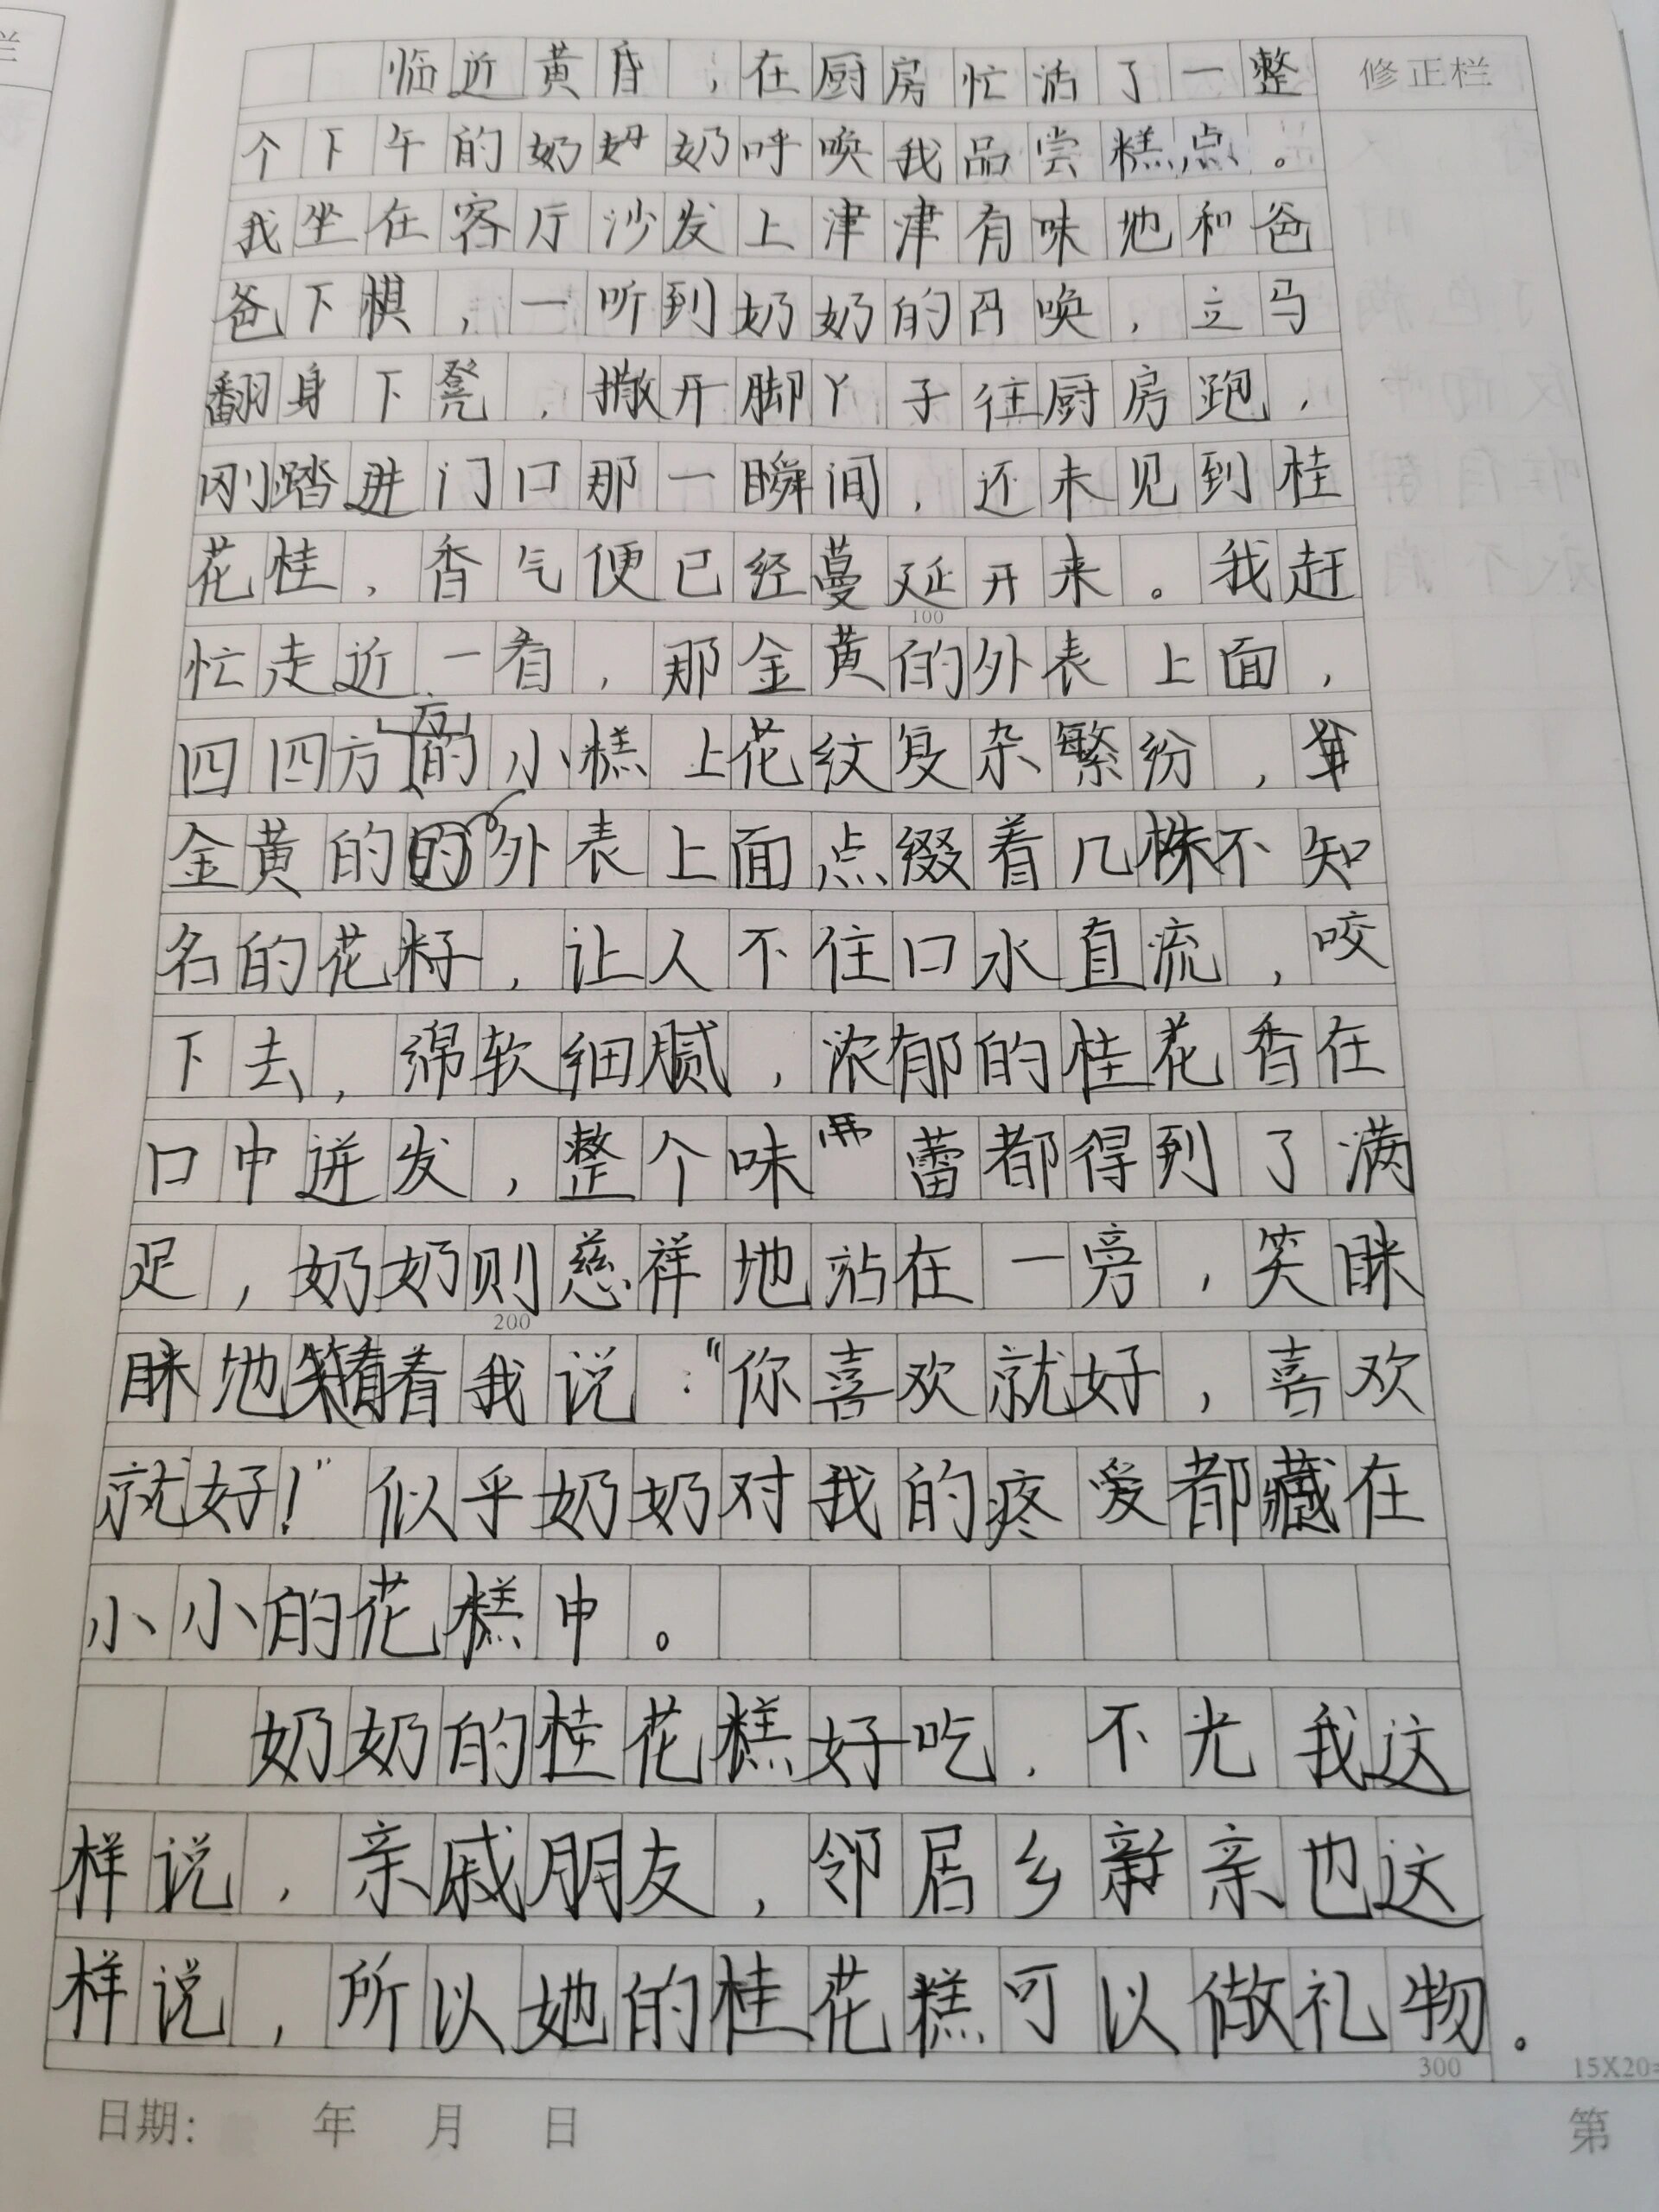 临近黄昏，在厨房忙活了一整
修正栏
个下午的奶奶奶呼唤我品尝糕点。
我坐在客厅沙发上津津有味地和爸
爸下棋，一听到奶奶的召唤，立马
翻身下凳，撒开脚丫子往厨房跑，
刚踏进门口那一瞬间，还未见到桂
花桂，香气便已经蔓延开来。我赶
忙走近一看，那金黄的外表上面，
四四方方的小糕上花纹复杂繁纷，
金黄的的外表上面点缀着几株不知
名的花籽，让人不住口水直流，咬
下去，绵软细腻，浓郁的桂花香在
口中迸发，整个味蕾都得到了满
足，奶奶则慈祥地站在一旁，笑眯
眯地看着我说："你喜欢就好，喜欢
就好！"似乎奶奶对我的疼爱都藏在
小小的花糕中。
奶奶的桂花糕好吃，不光我这
样说，亲戚朋友，邻居乡亲也这
样说，所以她的桂花糕可以做礼物。
100
200
300
15X20=
日期： 年 月 日
第